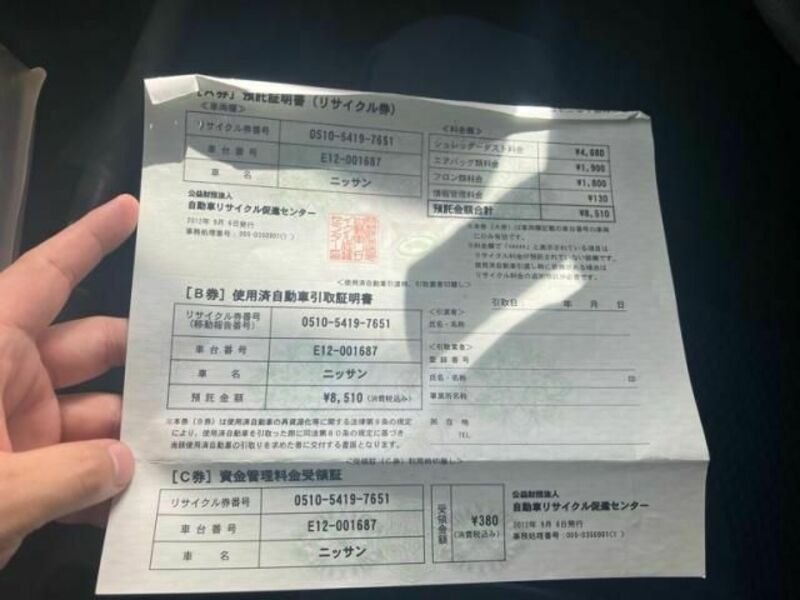 【A券】預託証明書（リサイクル券）
＜車両欄＞
リサイクル券番号 0510-5419-7651
車台番号 E12-001687
車名 ニッサン
公益財団法人
自動車リサイクル促進センター
2012年 9月 6日発行
＜料金欄＞
シュレッダーダスト料金 ¥4,680
エアバッグ類料金 ¥1,900
フロン類料金 ¥1,800
情報管理料金 ¥130
預託金額合計 ¥8,510
※本券（A券）は車両欄記載の車台番号の車両
にのみ有効です。
リサイクル料金が預託されていない装備です。
＜使用済自動車引渡時、引取業者切離し＞
【B券】使用済自動車引取証明書
リサイクル券番号
（移動報告番号） 0510-5419-7651
車台番号 E12-001687
車名 ニッサン
預託金額 ¥8,510（消費税込み）
※本券（B券）は使用済自動車の再資源化等に関する法律第９条の規定
により、使用済自動車を引取った際に同法第８０条の規定に基づき
当該使用済自動車の引取りを求めた者に交付する書面となります。
引取日： 年 月 日
＜引渡者＞
氏名・名称
＜引取業者＞
登録番号
氏名・名称 印
事業所名称
所在地
TEL
＜受領証（C券）利用時切離し＞
【C券】資金管理料金受領証
リサイクル券番号 0510-5419-7651
車台番号 E12-001687
車名 ニッサン
受領金額 ¥380
（消費税込み）
公益財団法人
自動車リサイクル促進センター
2012年 9月 6日発行